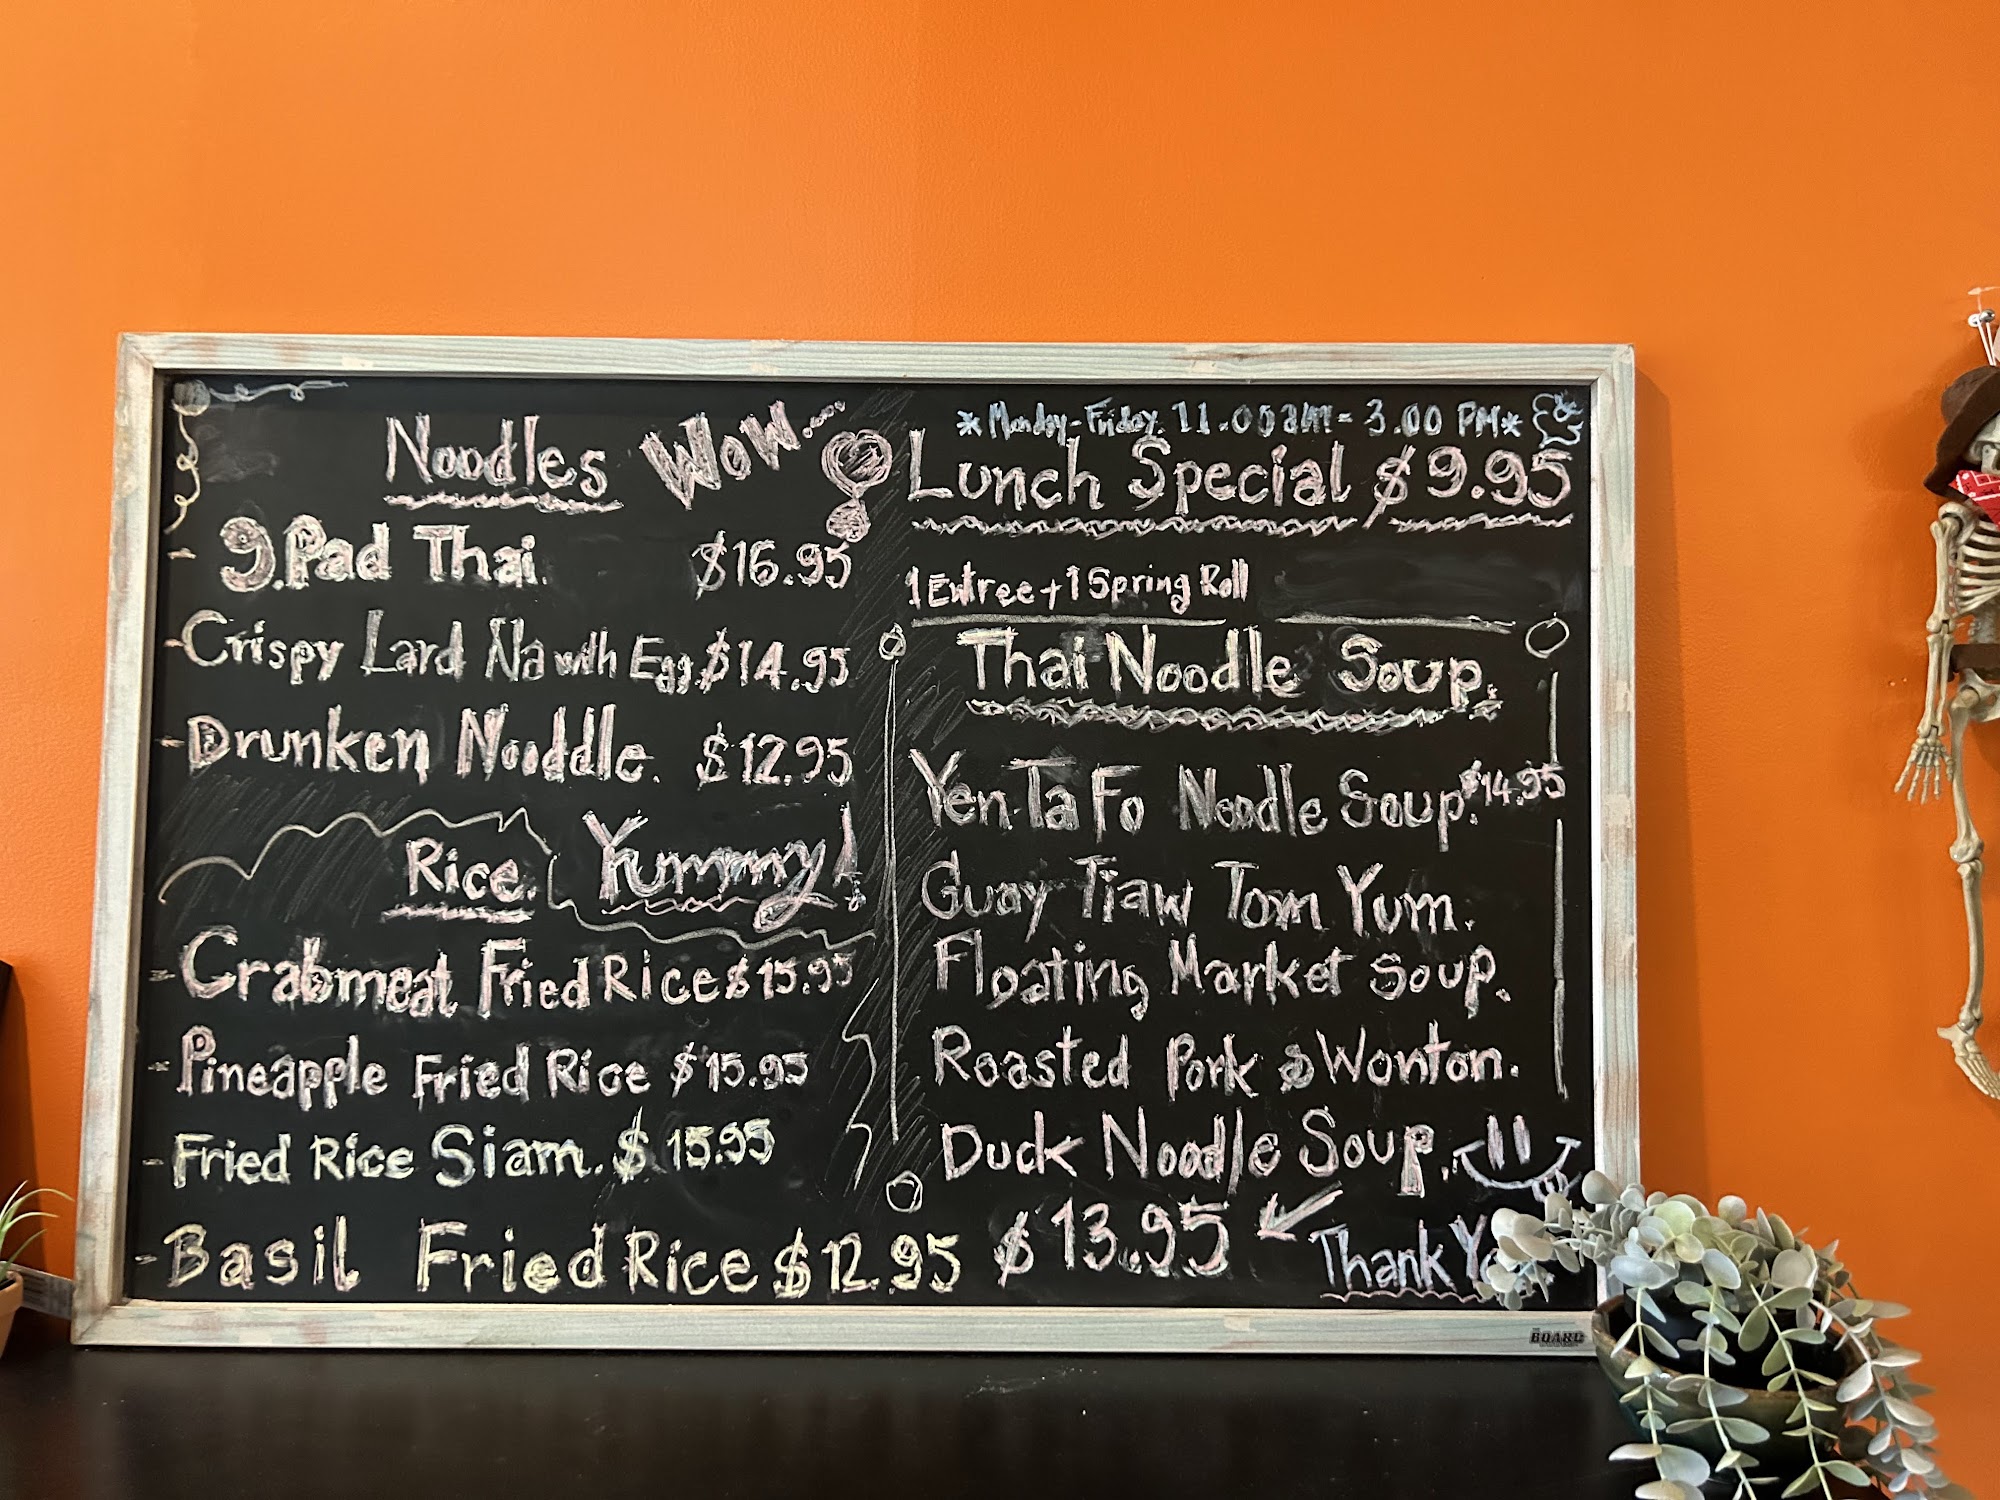 Noodles Wow....
- g.Pad Thai. $16.95
- Crispy Lard Na with Egg $14.95
- Drunken Nooddle. $12.95
Rice. Yummy!
- Crabmeat Fried Rice $15.95
- Pineapple Fried Rice $15.95
- Fried Rice Siam. $15.95
- Basil Fried Rice $12.95
*Monday-Friday. 11.00am - 3.00 PM*
Lunch Special $9.95
1 Entree + 1 Spring Roll
Thai Noodle Soup.
Yen Ta Fo Noodle Soup. $14.95
Guay Tiaw Tom Yum.
Floating Market Soup.
Roasted Pork & Wonton.
Duck Noodle Soup.
$13.95
Thank
THE BOARD